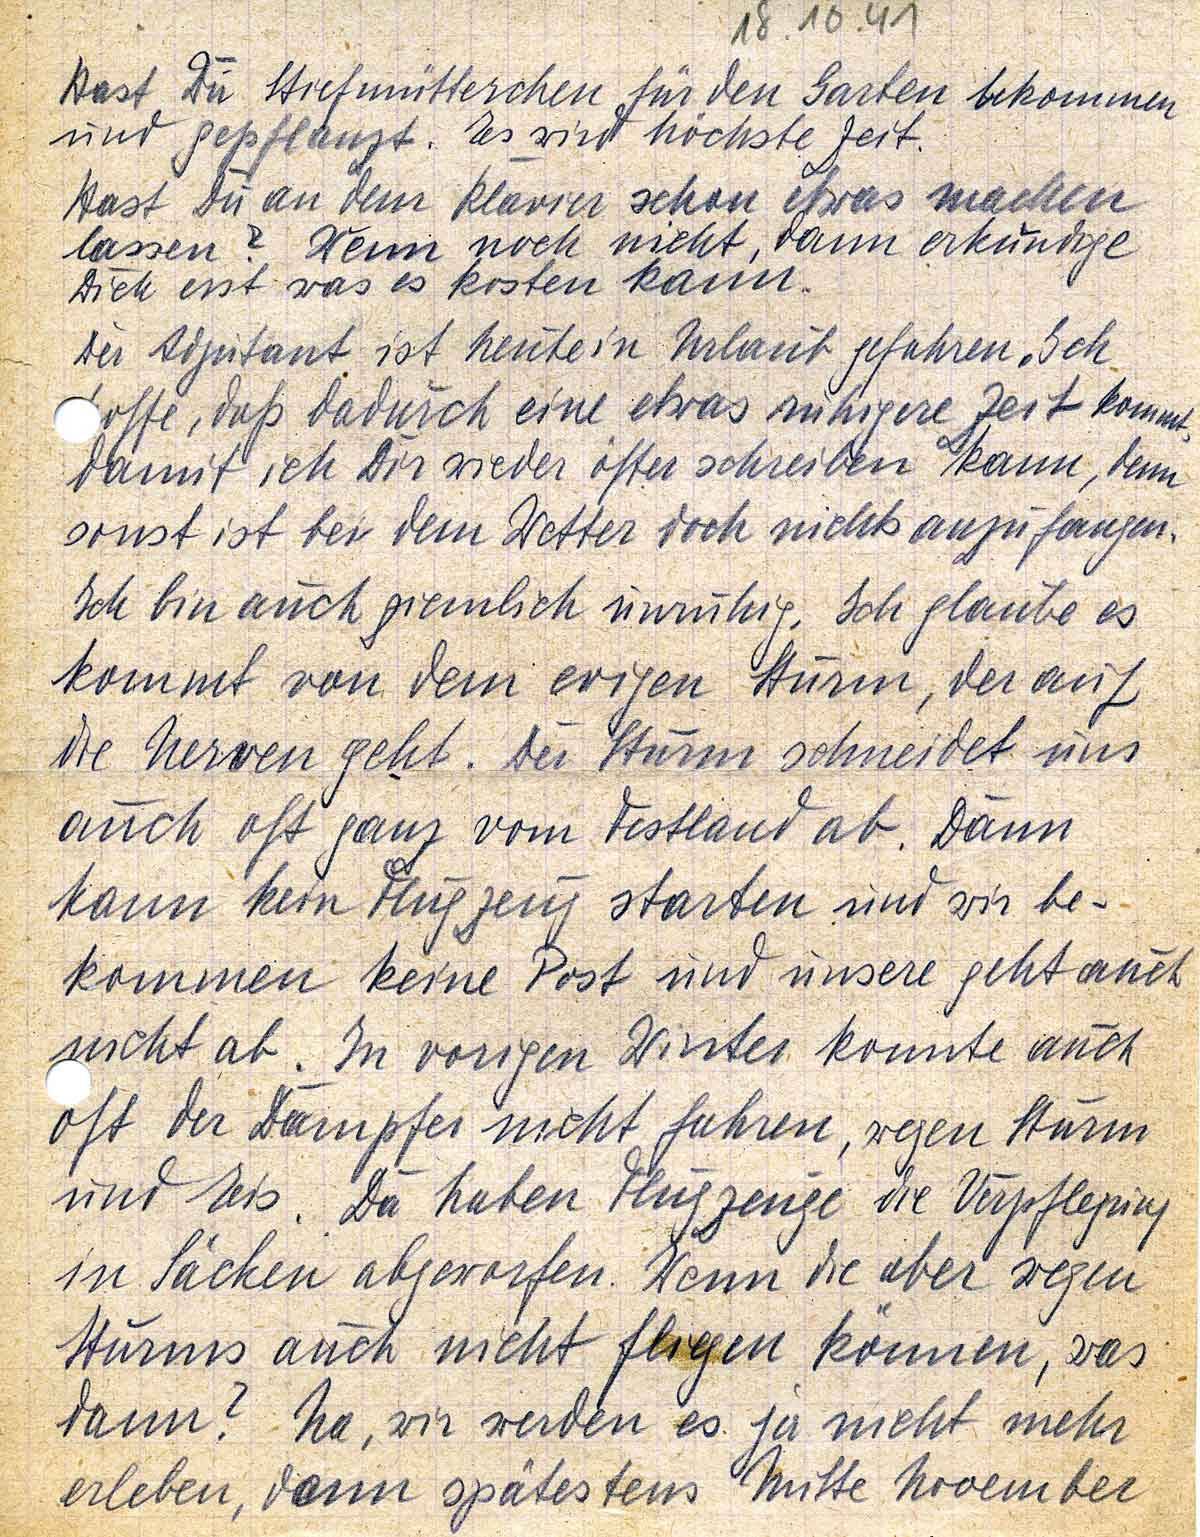 18.10.41
Hast Du Stiefmütterchen für den Garten bekommen
und gepflanzt. Es wird höchste Zeit.
Hast Du an dem Klavier schon etwas machen
lassen? Wenn noch nicht, dann erkundige
Dich erst was es kosten kann.
Der Adjutant ist heute in Urlaub gefahren. Ich
hoffe, daß dadurch eine etwas ruhigere Zeit kommt,
damit ich Dir wieder öfter schreiben kann, denn
sonst ist bei dem Wetter doch nichts anzufangen.
Ich bin auch ziemlich unruhig. Ich glaube es
kommt von dem ewigen Sturm, der auf
die Nerven geht. Der Sturm schneidet uns
auch oft ganz vom Festland ab. Dann
kann kein Flugzeug starten und wir be-
kommen keine Post und unsere geht auch
nicht ab. In vorigen Winter konnte auch
oft der Dampfer nicht fahren, wegen Sturm
und Eis. Da haben Flugzeuge die Verpflegung
in Säcken abgeworfen. Wenn die aber wegen
Sturms auch nicht fliegen können, was
dann? Na, wir werden es ja nicht mehr
erleben, denn spätestens Mitte November